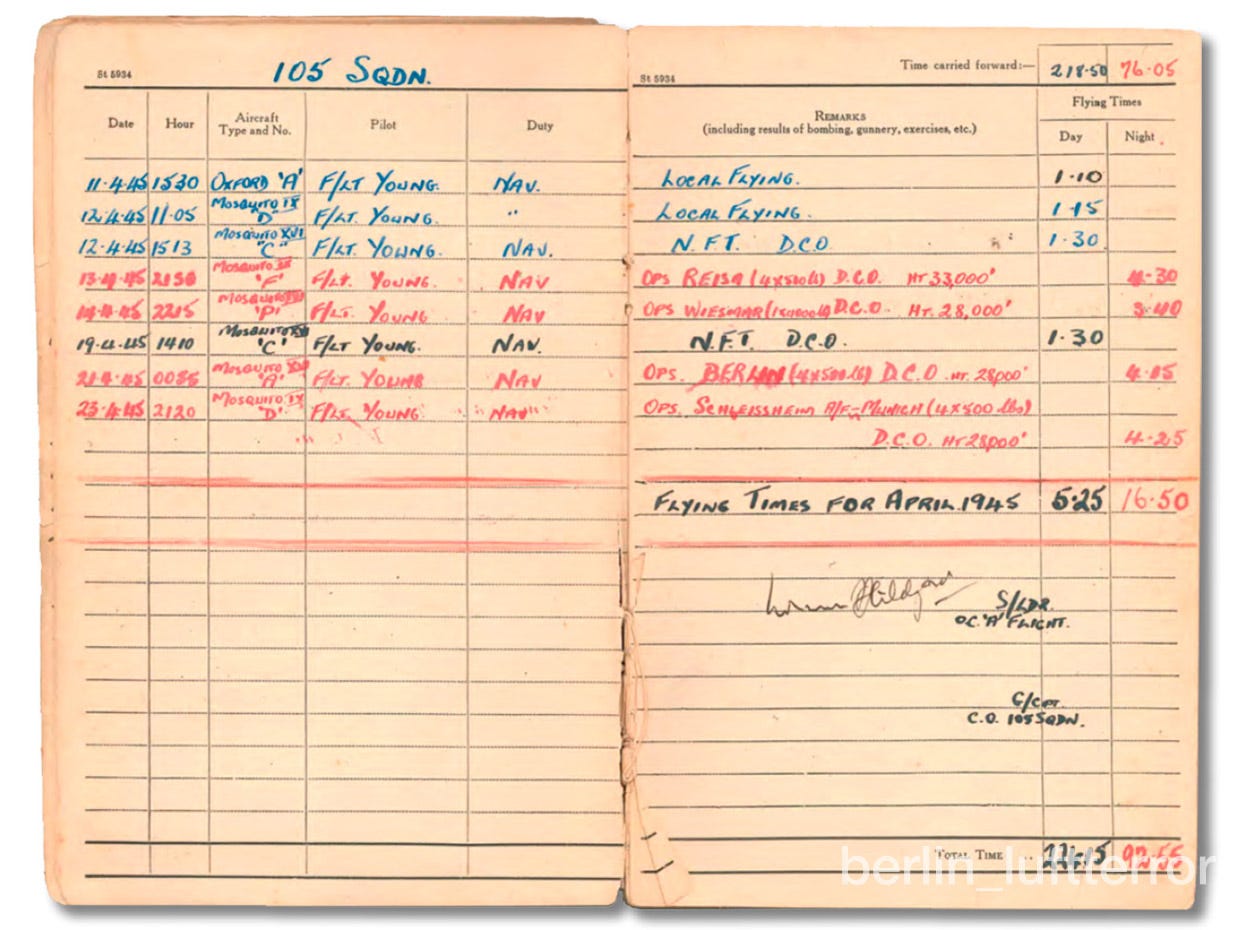 St 5934
105 SQDN.
Date Hour Aircraft Type and No. Pilot Duty
11·4·45 1530 OXFORD 'A' F/LT YOUNG. NAV.
12·4·45 11·05 MOSQUITO IX "D" F/LT. YOUNG. "
12·4·45 1513 MOSQUITO XVI "C" F/LT. YOUNG. NAV.
13·4·45 2130 MOSQUITO 'F' F/LT. YOUNG. NAV
14·4·45 2215 MOSQUITO 'P' F/LT. YOUNG NAV
19·4·45 1410 MOSQUITO 'C' F/LT YOUNG. NAV.
21·4·45 0035 MOSQUITO XVI 'A' F/LT. YOUNG NAV
23·4·45 2120 MOSQUITO IX 'D' F/LT. YOUNG NAV
St 5934
Time carried forward:— 218·50 76·05
REMARKS
(including results of bombing, gunnery, exercises, etc.)
Flying Times
Day Night
LOCAL FLYING. 1·10
LOCAL FLYING. 1·15
N.F.T. D.C.O. 1·30
OPS REISA (4x500lb) D.C.O. HT 33,000' 4·30
OPS WIESMAR D.C.O. HT. 28,000' 3·40
N.F.T. D.C.O. 1·30
OPS. BERLIN (4x500 lb) D.C.O. HT. 28,000' 4·15
OPS. SCHLEISSHEIM A/F-MUNICH (4x500 lbs)
D.C.O. HT 28,000' 4·25
FLYING TIMES FOR APRIL 1945 5·25 16·50
S/LDR.
O.C. 'A' FLIGHT.
G/CPT.
C.O. 105 SQDN.
TOTAL TIME .. 92·55
berlin_luftterror